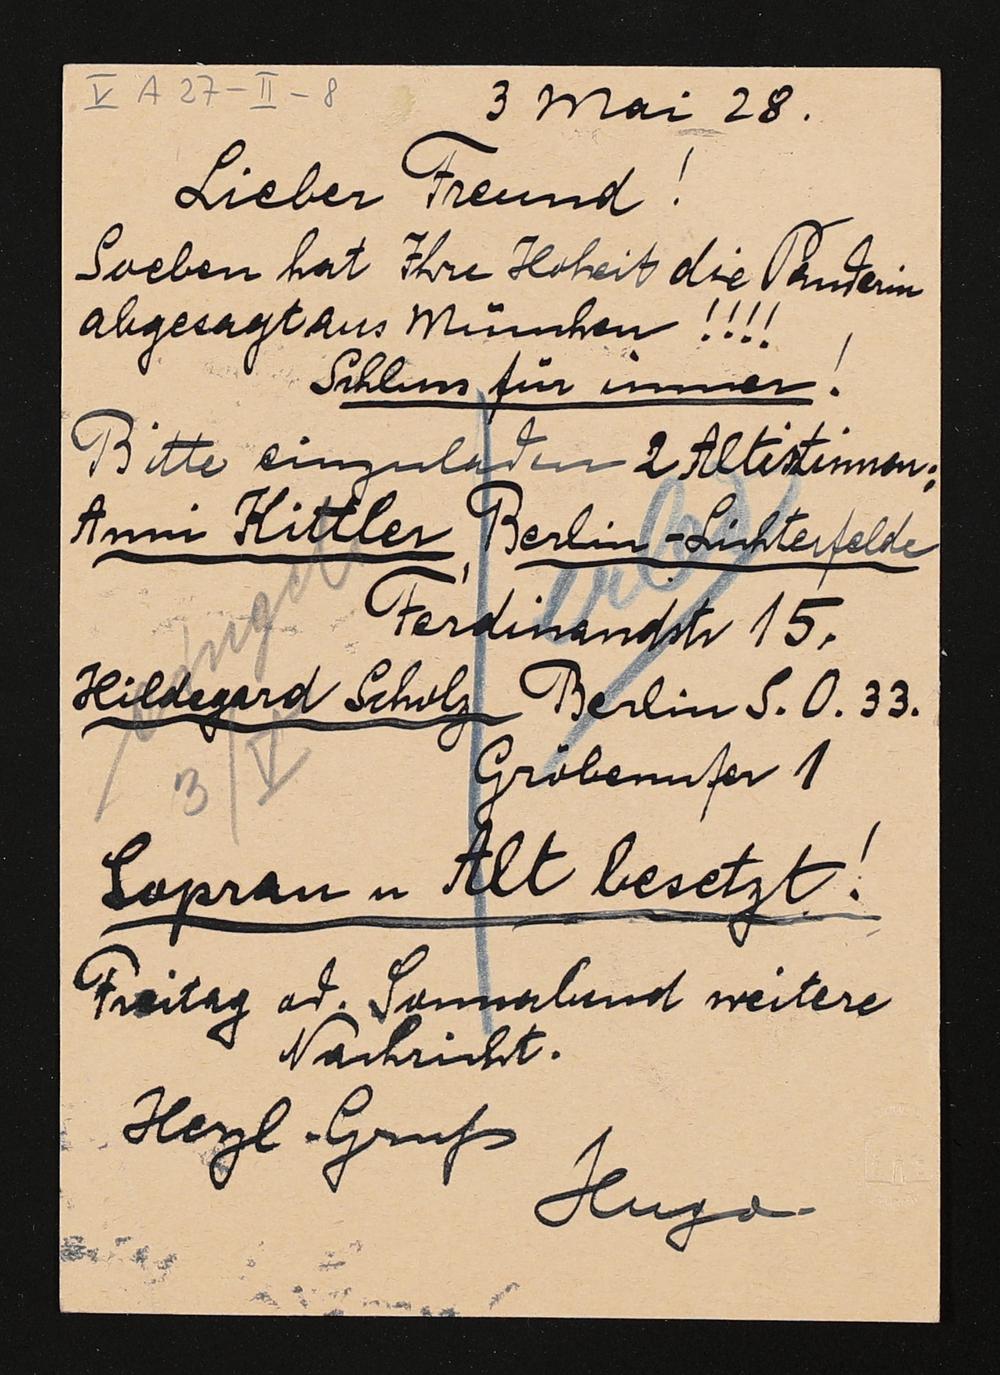 V A 27-II-8
3 Mai 28.
Lieber Freund!
Soeben hat Ihre Hoheit die Panderin
abgesagt aus München !!!!
Schluss für immer!
Bitte einzuladen 2 Altistinnen:
Anni Kittler, Berlin-Lichterfelde
Ferdinandstr 15.
Hildegard Scholz Berlin S. O. 33.
Gröbenufer 1
3/V
Sopran u Alt besetzt!
Freitag od. Sonnabend weitere
Nachricht.
Herzl. Gruß
Hugo